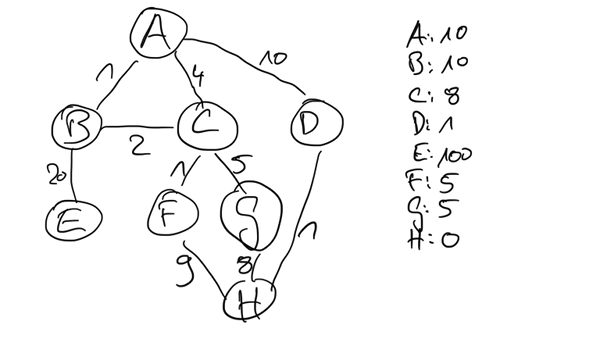 A
1
4
10
B
2
C
D
20
1
5
E
F
G
1
9
8
H
A: 10
B: 10
C: 8
D: 1
E: 100
F: 5
G: 5
H: 0